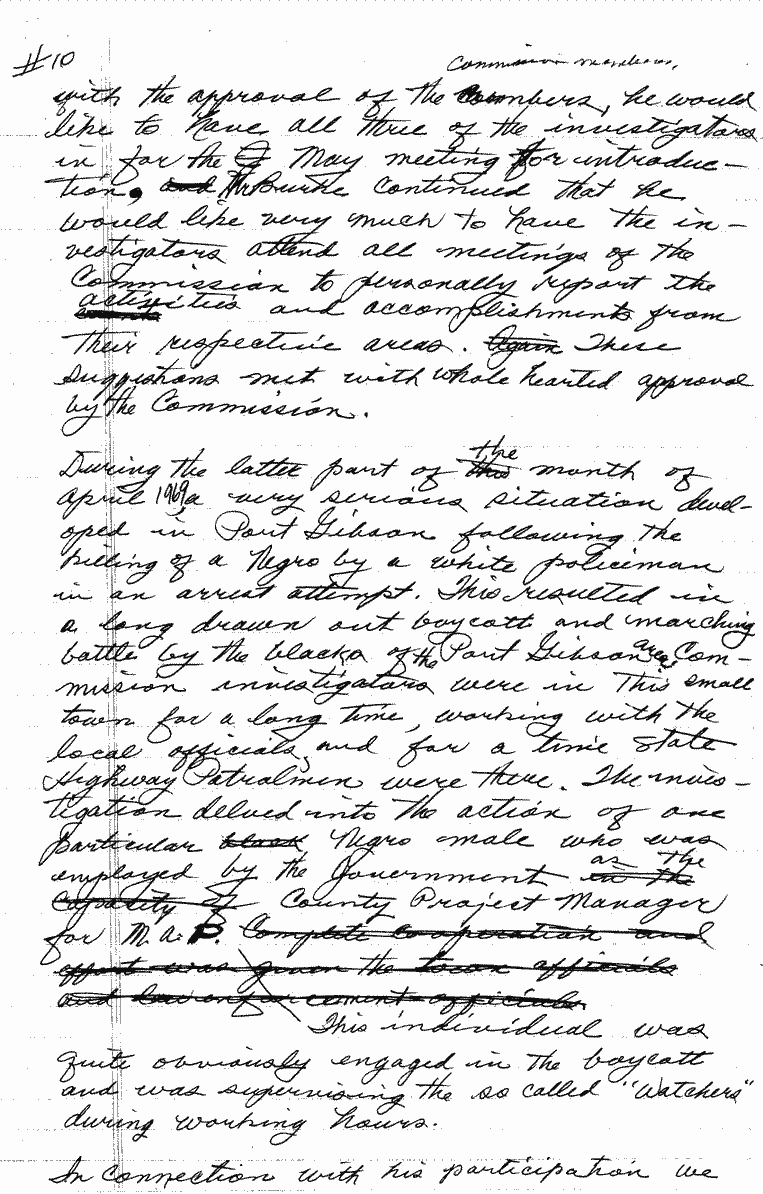 #10
Commission members,
with the approval of the members, he would
like to have all three of the investigators
in for the May meeting for introduc-
tion. and Mr Burke continued that he
would like very much to have the in-
vestigators attend all meetings of the
Commission to personally report the
activities and accomplishments from
their respective areas. Again These
suggestions met with whole hearted approval
by the Commission.
During the latter part of this the month of
April 1969, a very serious situation devel-
oped in Port Gibson following the
killing of a Negro by a white policeman
in an arrest attempt. This resulted in
a long drawn out boycott and marching
battle by the blacks of the Port Gibson area. Com-
mission investigators were in this small
town for a long time, working with the
local officials, and for a time State
Highway Patrolmen were there. The inves-
tigation delved into the action of one
particular black Negro male who was
employed by the Government in the as the
capacity of County Project Manager
for M.A.P. Complete cooperation and
effort was given the town officials
and law enforcement officials.
This individual was
quite obviously engaged in the boycott
and was supervising the so called "Watchers"
during working hours.
In connection with his participation we